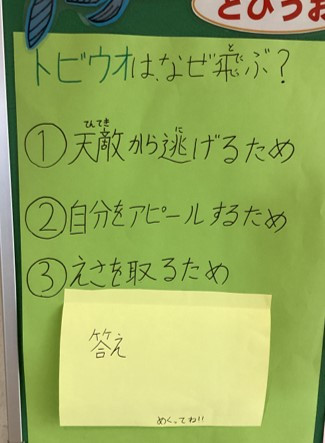 とびうお
トビウオは、なぜ飛ぶ?
①天敵から逃げるため
②自分をアピールするため
③えさを取るため
答え
めくってね!!